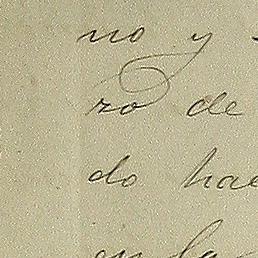 no y
zo de
do hae
en la